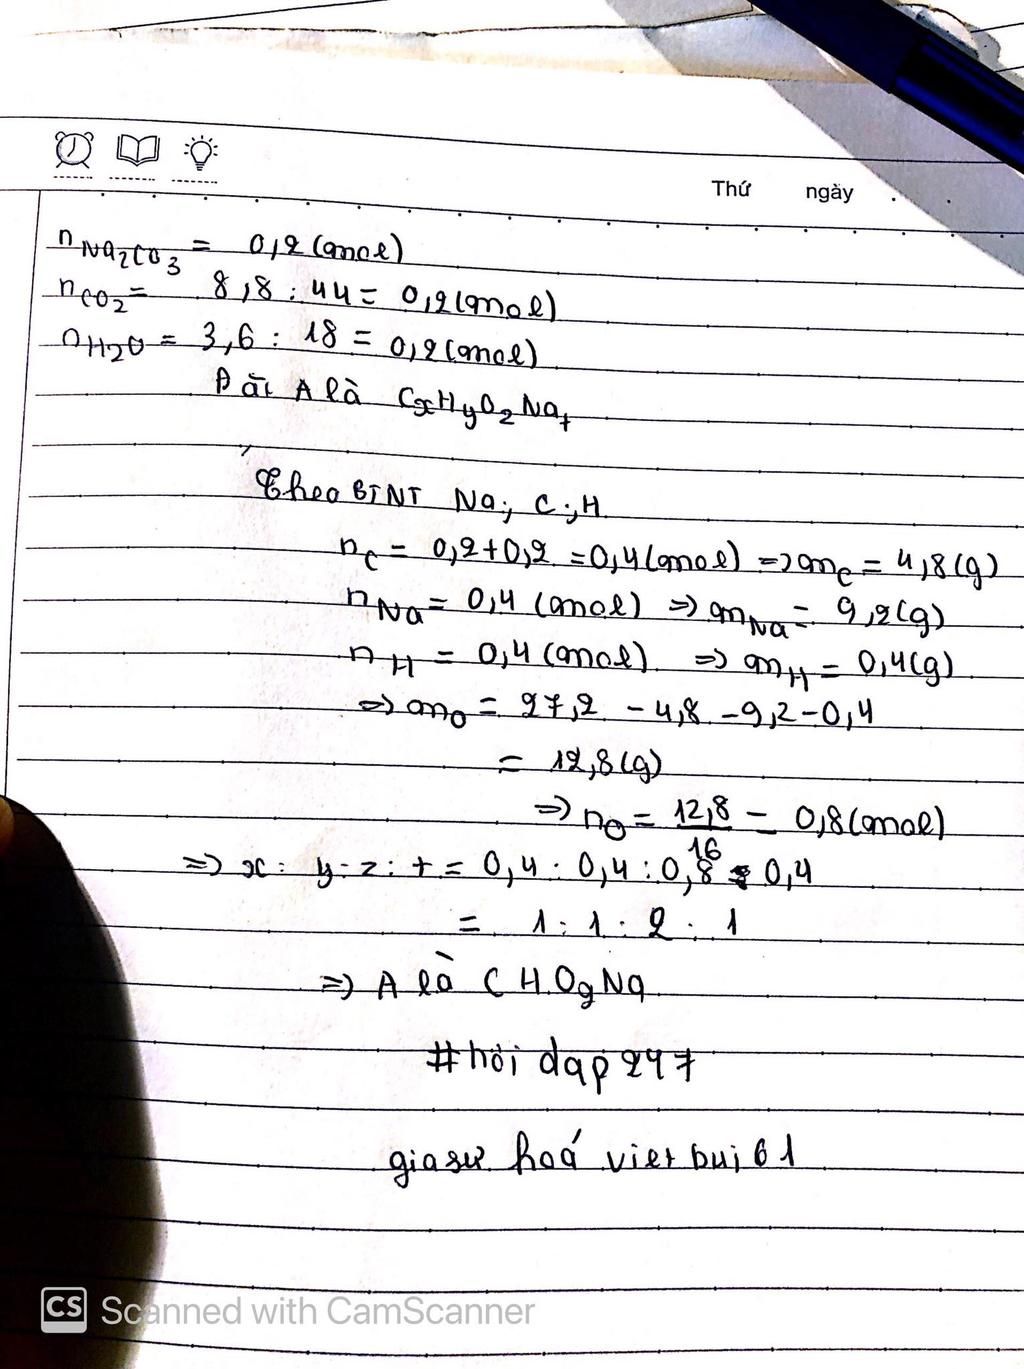 Thứ ngày
nNa2CO3 = 0,2 (mol)
nCO2 = 8,8 : 44 = 0,2 (mol)
nH2O = 3,6 : 18 = 0,2 (mol)
Đặt A là CxHyOzNat
Theo BTNT Na; C; H
nC = 0,2+0,2 = 0,4 (mol) => mC = 4,8 (g)
nNa = 0,4 (mol) => mNa = 9,2 (g)
nH = 0,4 (mol) => mH = 0,4 (g)
=> mO = 27,2 - 4,8 - 9,2 - 0,4
= 12,8 (g)
=> nO = 12,8/16 = 0,8 (mol)
=> x : y : z : t = 0,4 : 0,4 : 0,8 : 0,4
= 1 : 1 : 2 : 1
=> A là CHO2Na
#hỏi dap 247
gia sư hoá viet bui 61
CS Scanned with CamScanner